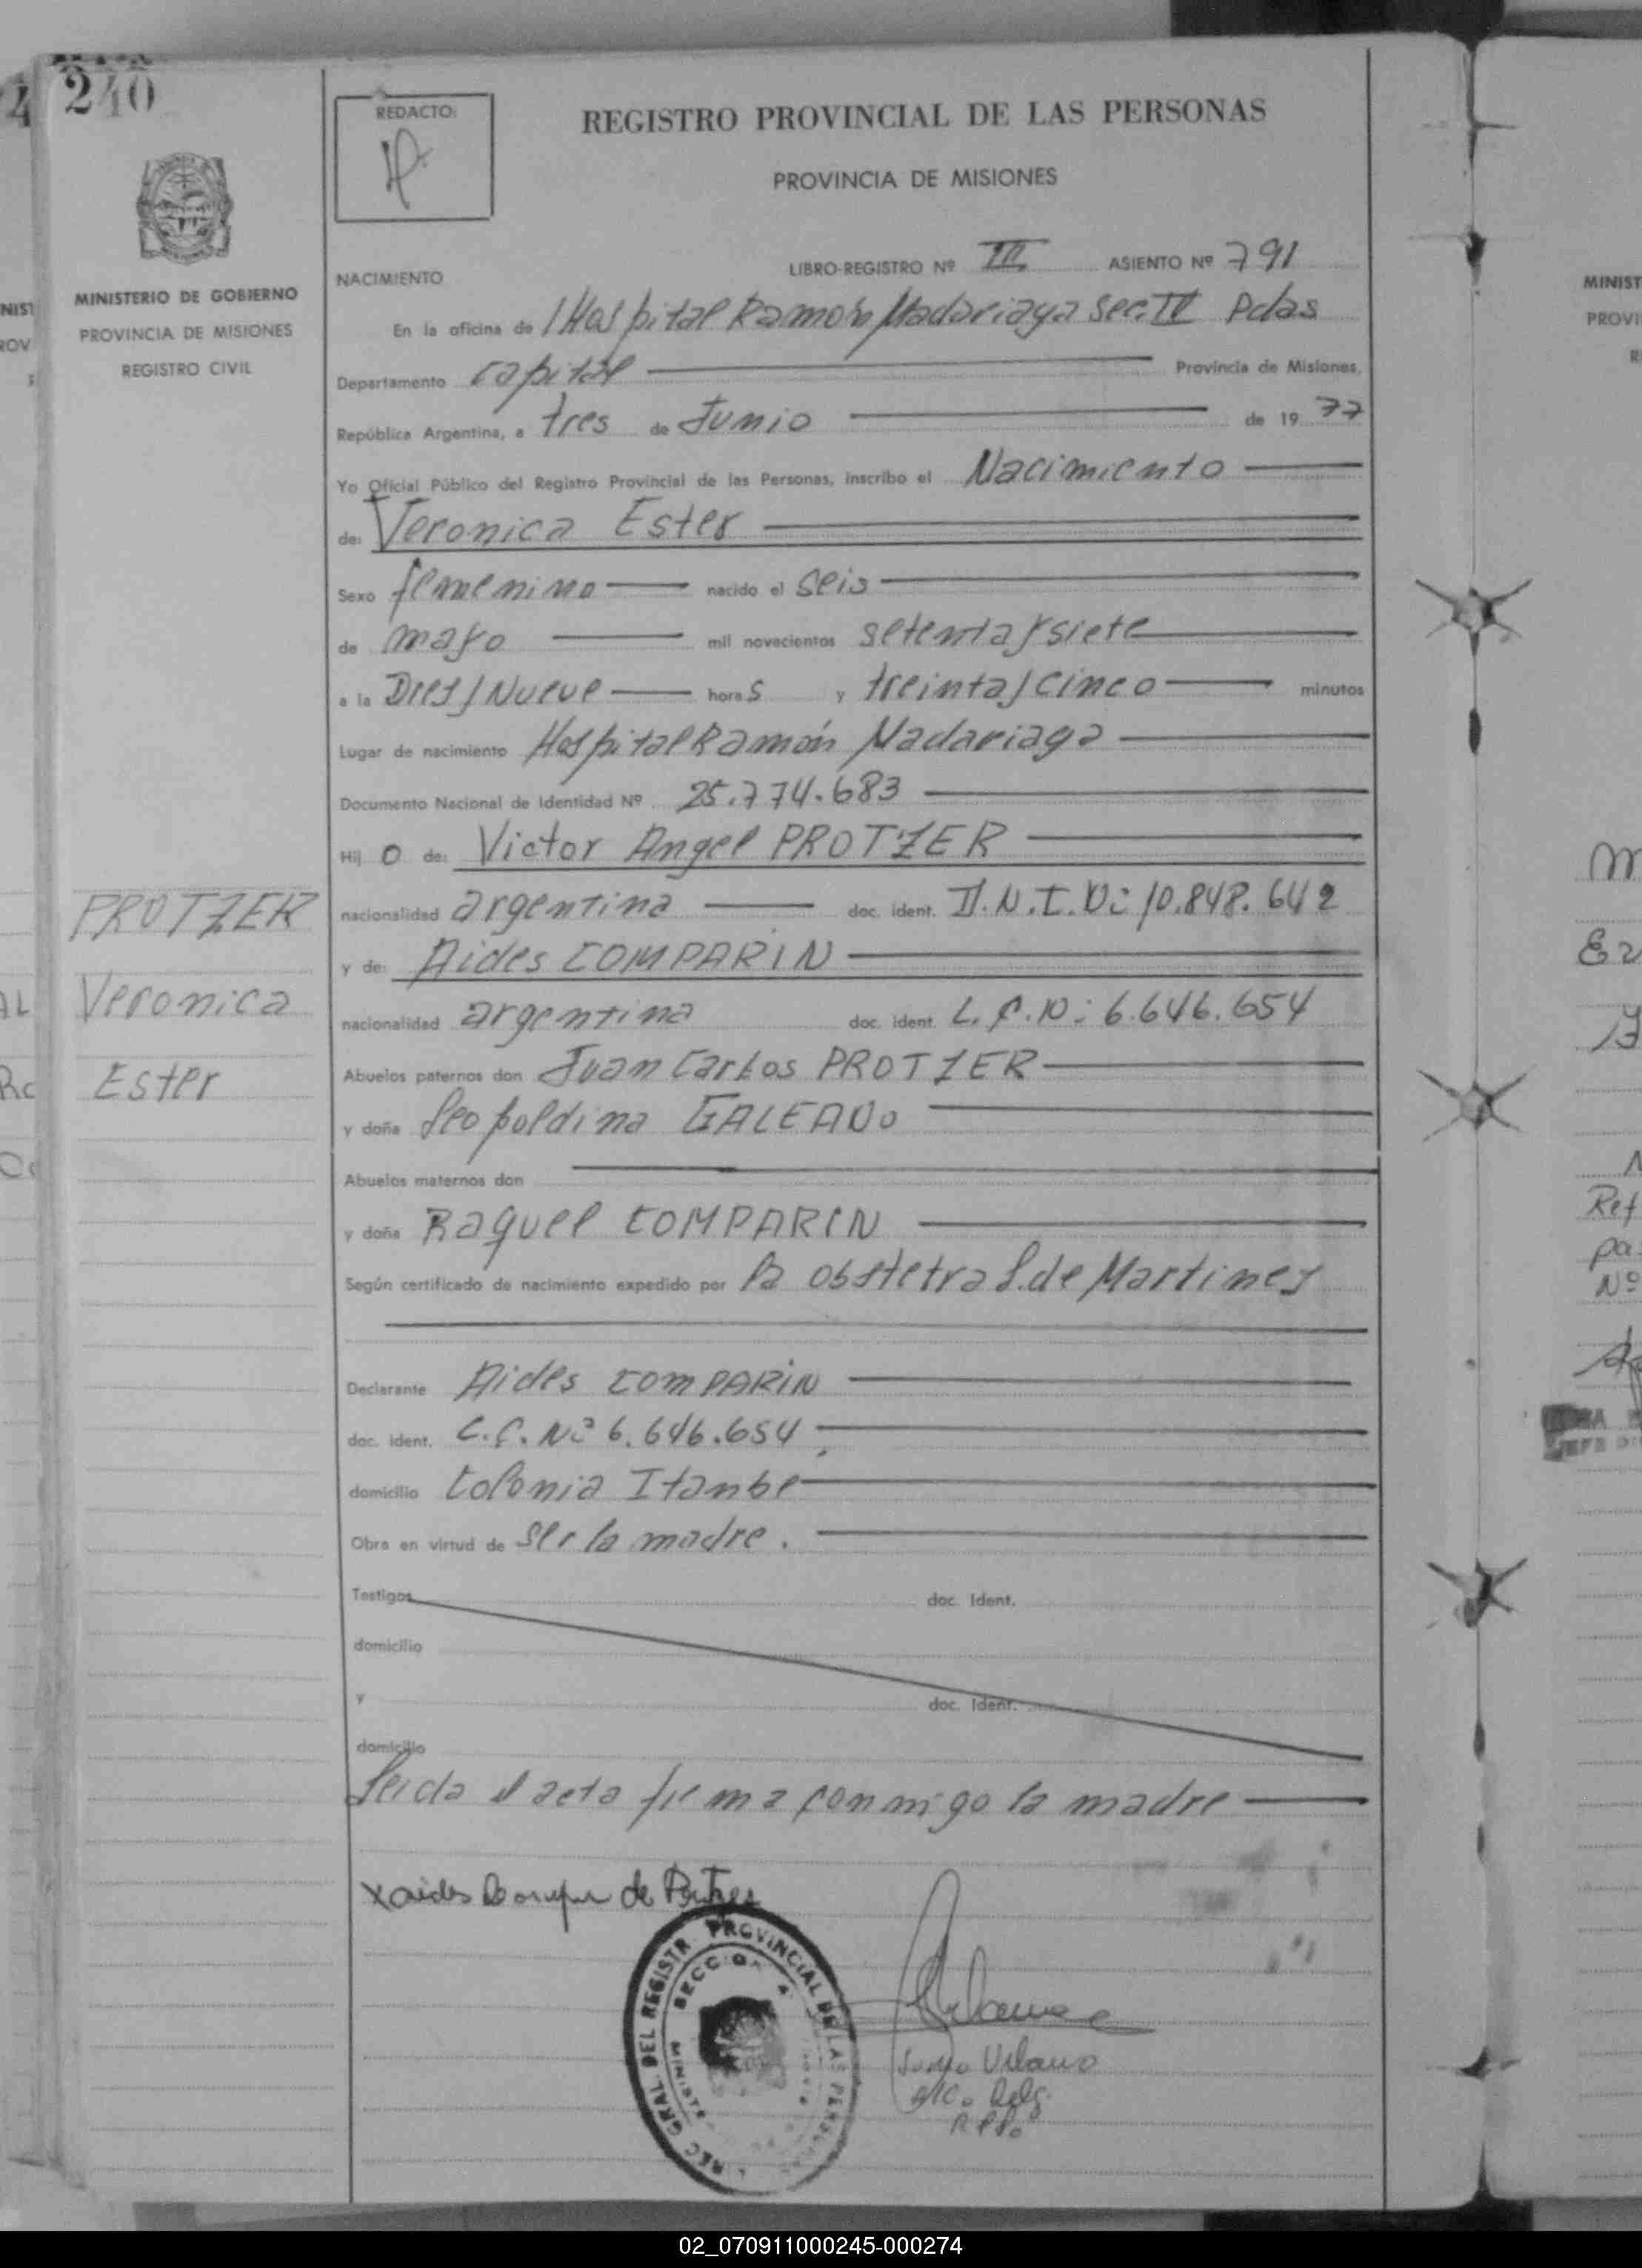 240
REDACTO:
REGISTRO PROVINCIAL DE LAS PERSONAS
PROVINCIA DE MISIONES
MINISTERIO DE GOBIERNO
PROVINCIA DE MISIONES
REGISTRO CIVIL
NACIMIENTO
LIBRO-REGISTRO Nº III ASIENTO Nº 791
En la oficina de Hospital Ramón Madariaga Sec. IV Pdas
Departamento Capital Provincia de Misiones,
República Argentina, a tres de Junio de 19 77
Yo Oficial Público del Registro Provincial de las Personas, inscribo el Nacimiento
de: Veronica Ester
Sexo femenino nacido el seis
de mayo mil novecientos setenta y siete
a la Diez y Nueve hora s y treinta y cinco minutos
Lugar de nacimiento Hospital Ramón Madariaga
Documento Nacional de Identidad Nº 25.774.683
Hij o de: Victor Angel PROTZER
nacionalidad argentina doc. ident. D.N.I. Nº 10.848.642
y de: Aides COMPARIN
nacionalidad argentina doc. ident. L.C. Nº 6.646.654
Abuelos paternos don Juan Carlos PROTZER
y doña Leopoldina GALEANO
Abuelos maternos don
y doña Raquel COMPARIN
Según certificado de nacimiento expedido por la obstetra S. de Martinez
Declarante Aides COMPARIN
doc. ident. L.C. Nº 6.646.654
domicilio Colonia Itambe
Obra en virtud de ser la madre.
Testigos doc. Ident.
domicilio
y doc. Ident.
domicilio
Leida el acta firma conmigo la madre
PROTZER
Veronica
Ester
x aides de
REC GRAL. DEL REGISTR. PROVINCIAL DE LAS PERSONAS
SECCION 4
Urbano
02_070911000245-000274